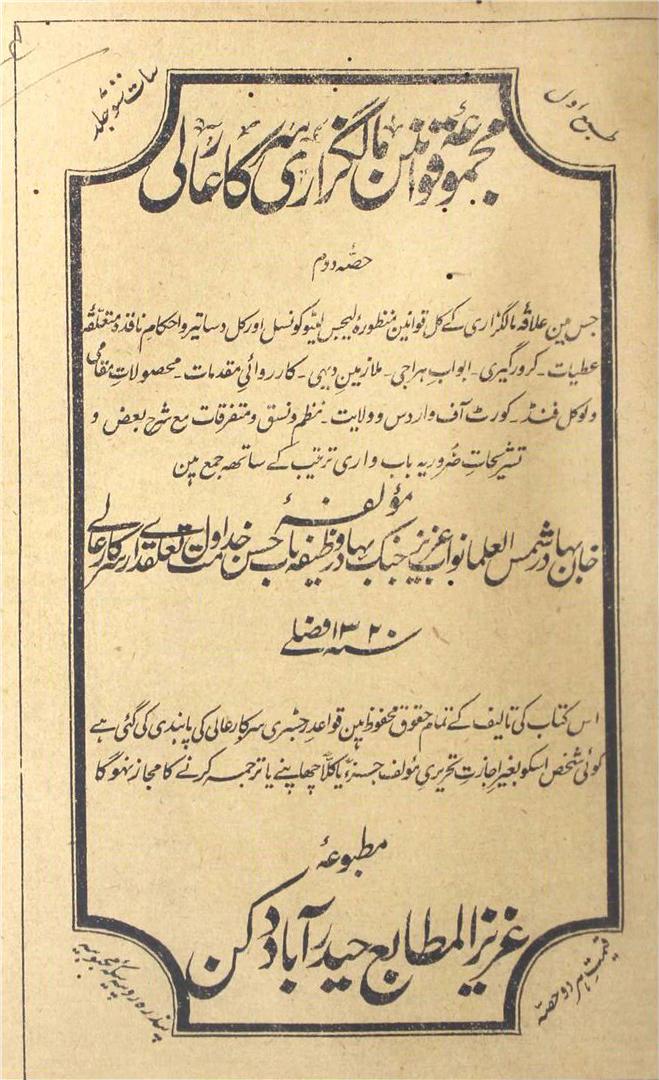 طبع اول
سات سو جلد
مجموعۂ قوانین مالگزاری سرکار عالی
حصّہ دوم
جس مین علاقۂ مالگزاری کے کل قوانین منظورۂ لیجس لیٹیو کونسل اور کل دساتیر و احکام نافذہ متعلّقہ
عطیات ۔ کرورگیری ۔ ابواب ہراجی ۔ ملازمین دیہی ۔ کارروائی مقدمات ۔ محصولات مقامی
و لوکل فنڈ ۔ کورٹ آف وارڈس و ولایت ۔ نظم و نسق و متفرقات مع شرح بعض و
تشریحاتِ ضروریہ باب واری ترتیب کے ساتھہ جمع ہین
مؤلفۂ
خان بہادر شمس العلما نواب عزیز جنگ بہادر وظیفہ یاب حسن خدمات اول تعلقداری سرکار عالی
سنہ ۱۳۲۰ فصلے
اس کتاب کی تالیف کے تمام حقوق محفوظ ہین قواعد رجسٹری سرکار عالی کی پابندی کی گئی ہے
کوئی شخص اسکو بغیر اجازت تحریری مؤلف جزءً یا کلاً چھاپنے یا ترجمہ کرنے کا مجاز نہوگا
مطبوعۂ
عزیز المطابع حیدرآباد دکن
قیمت ہر دو حصّہ
پندرہ روپیہ سکہ محبوبیہ